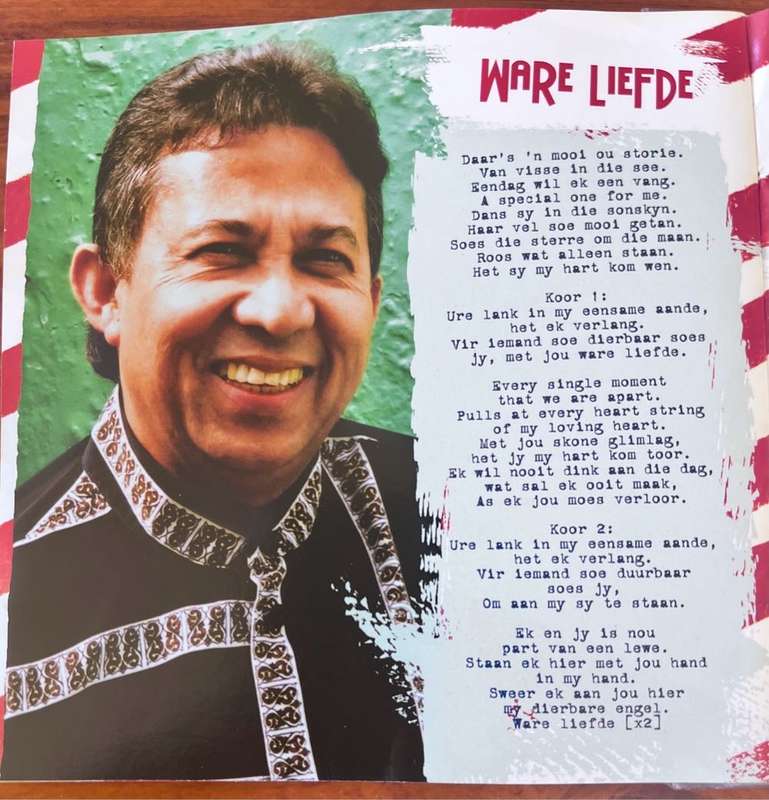 WARE LIEFDE
Daar's 'n mooi ou storie.
Van visse in die see.
Eendag wil ek een vang.
A special one for me.
Dans sy in die sonskyn.
Haar vel soe mooi getan.
Soes die sterre om die maan.
Roos wat alleen staan.
Het sy my hart kom wen.
Koor 1:
Ure lank in my eensame aande,
het ek verlang.
Vir iemand soe dierbaar soes
jy, met jou ware liefde.
Every single moment
that we are apart.
Pulls at every heart string
of my loving heart.
Met jou skone glimlag,
het jy my hart kom toor.
Ek wil nooit dink aan die dag,
wat sal ek ooit maak,
As ek jou moes verloor.
Koor 2:
Ure lank in my eensame aande,
het ek verlang.
Vir iemand soe duurbaar
soes jy,
Om aan my sy te staan.
Ek en jy is nou
part van een lewe.
Staan ek hier met jou hand
in my hand.
Sweer ek aan jou hier
my dierbare engel.
Ware liefde [x2]